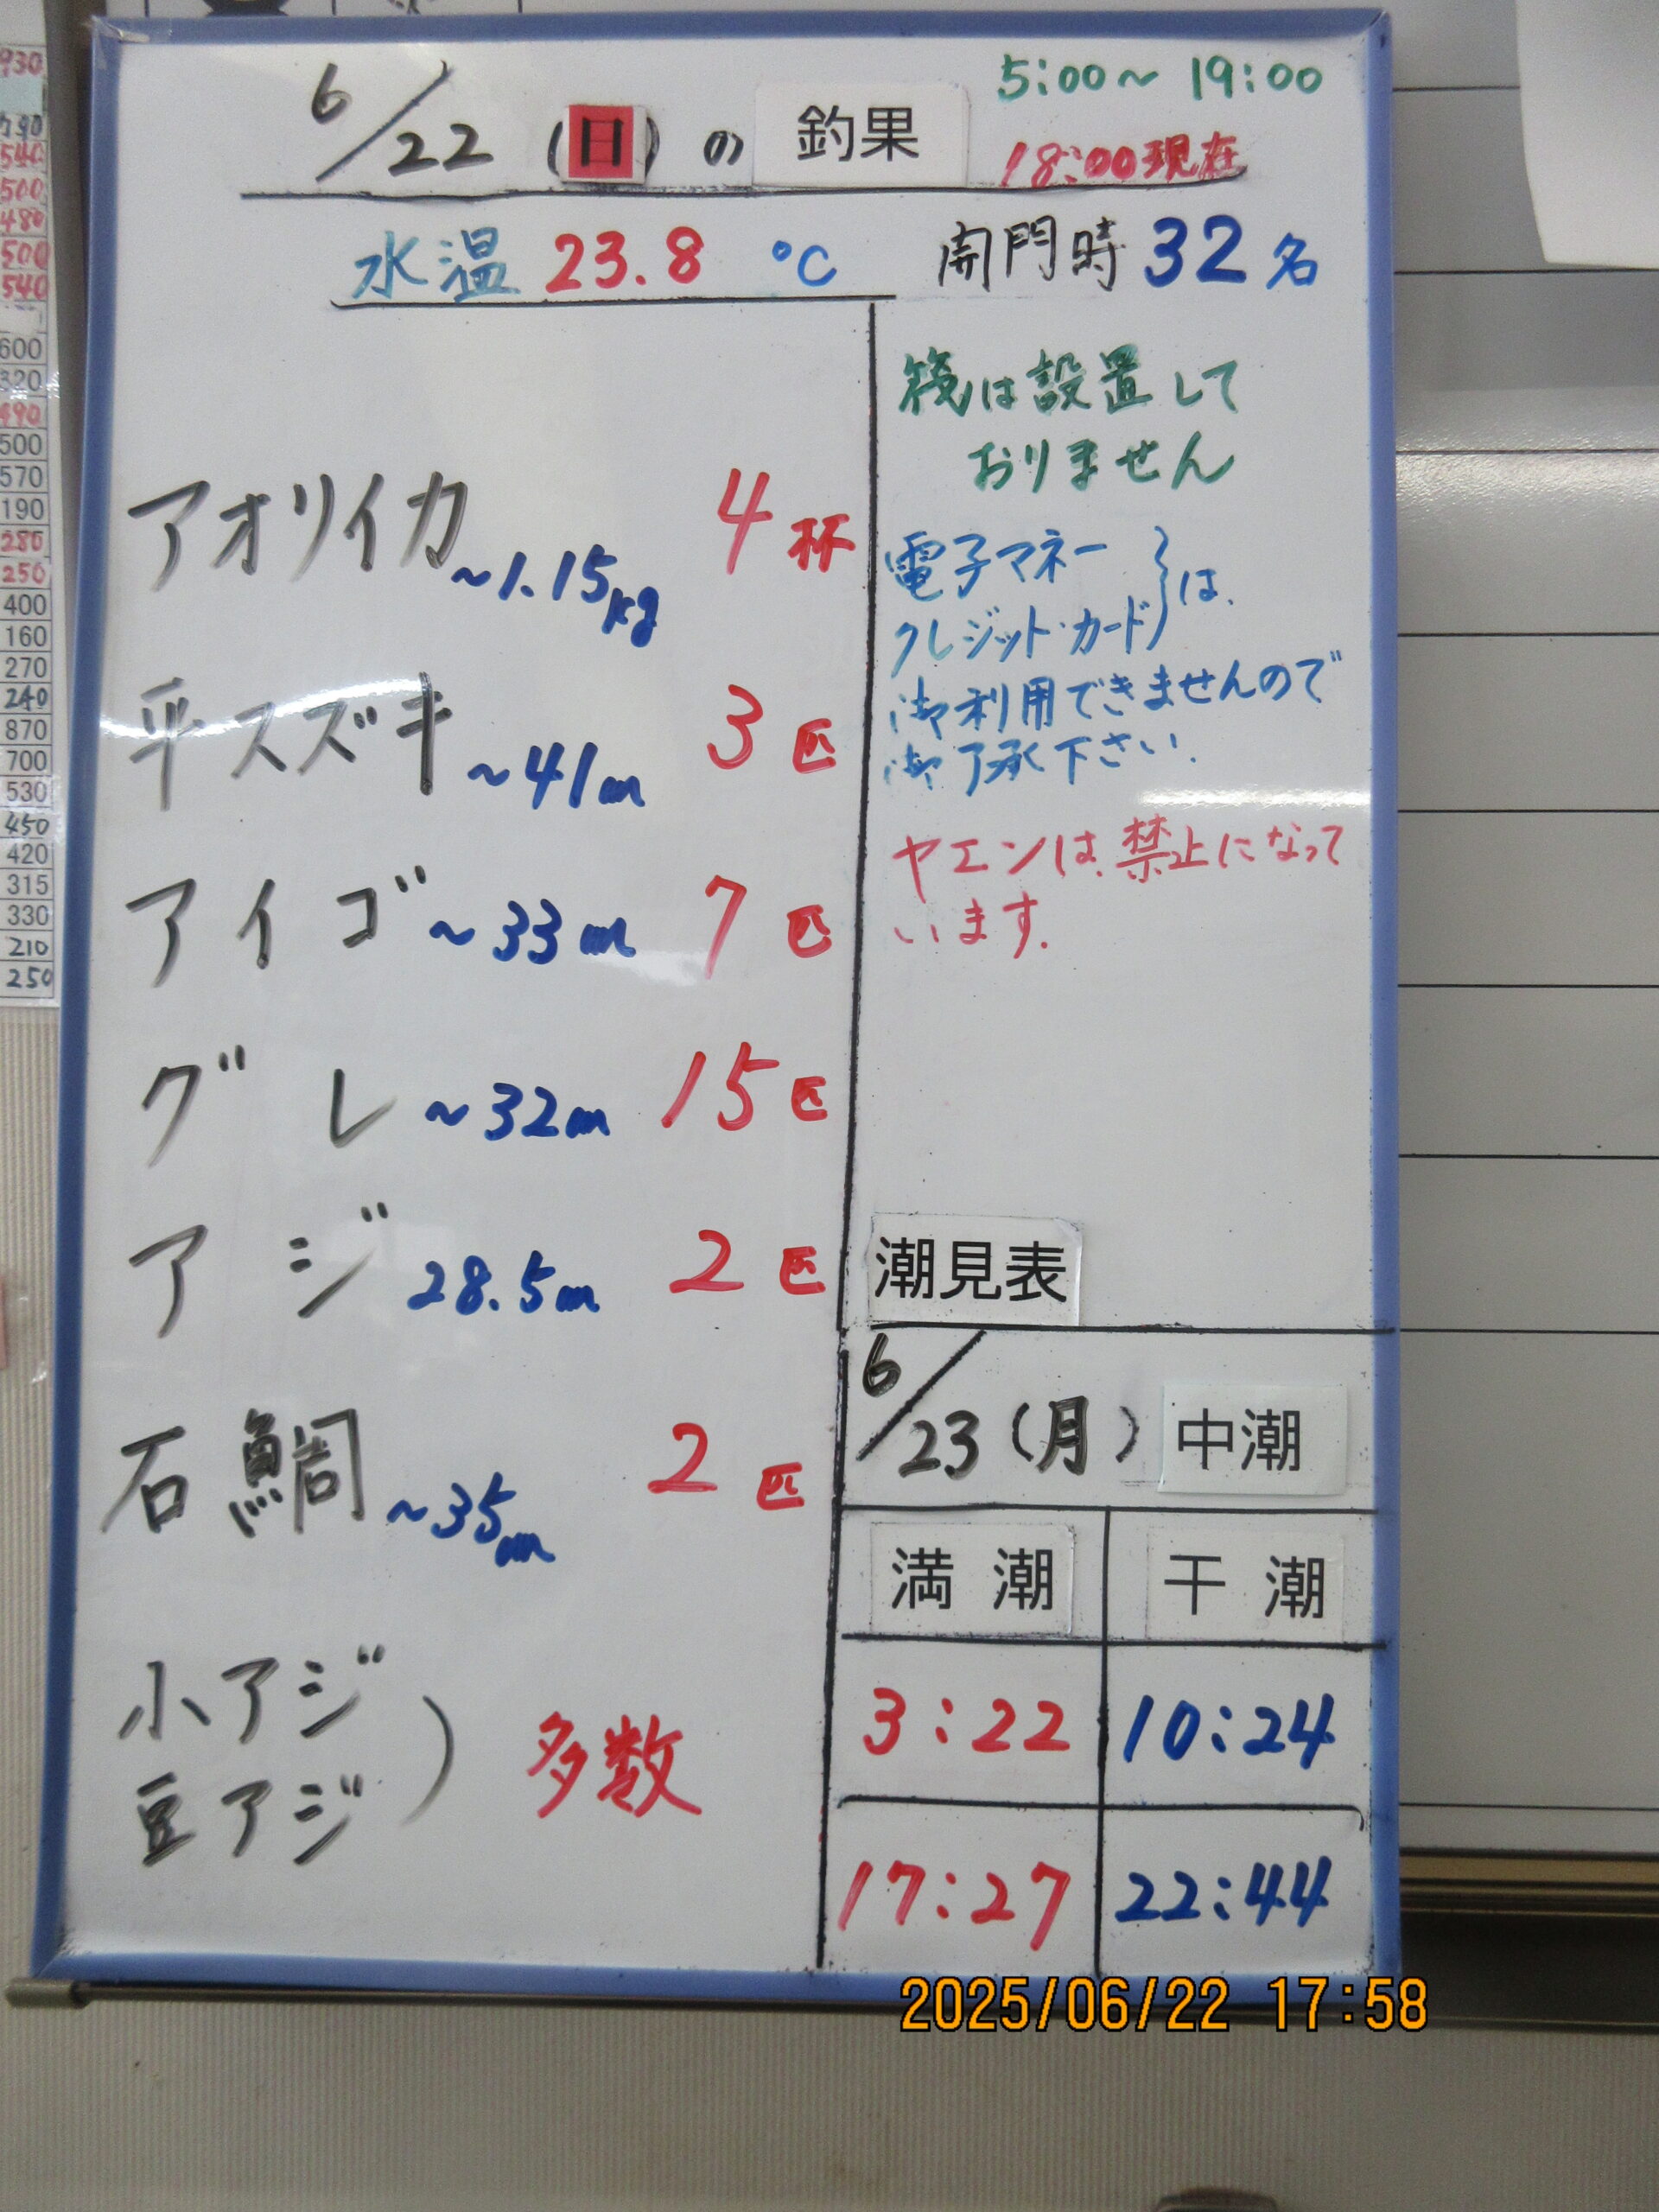 6/22（日）の 釣果
5:00～19:00
18:00現在
水温 23.8 ℃
開門時 32名
アオリイカ ～1.15kg 4杯
平スズキ ～41cm 3匹
アイゴ ～33cm 7匹
グレ ～32cm 15匹
アジ 28.5cm 2匹
石鯛 ～35cm 2匹
小アジ
豆アジ ） 多数
筏は設置して
おりません
電子マネー
クレジット・カード ｝は、
御利用できませんので
御了承下さい.
ヤエンは、禁止になって
います.
潮見表
6/23（月） 中潮
満潮 干潮
3:22 10:24
17:27 22:44
2025/06/22 17:58
930
540
500
480
500
540
600
320
490
500
570
190
280
250
400
160
270
240
870
700
530
450
420
315
330
210
250